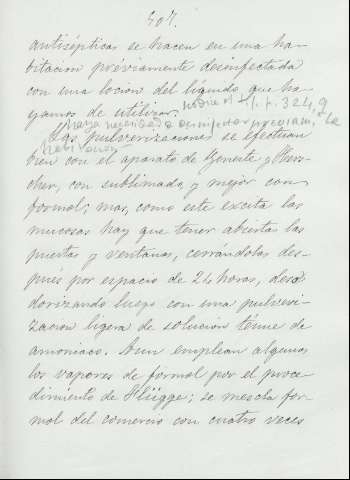 507.
antisépticas se hacen en una ha-
bitación préviamente desinfectada
con una loción del líquido que ha-
yamos de utilizar.
324
haya necesidad
Las pulverizaciones se efectúan
bien con el aparato de Geneste y Hers-
cher, con sublimado, y mejor con
formol; mas, como este excita las
mucosas hay que tener abiertas las
puertas y ventanas, cerrándolas des-
pués por espacio de 24 horas, deso-
dorizando luego con una pulveri-
zación ligera de solución ténue de
amoniaco. Aun emplean algunos
los vapores de formol por el proce-
dimiento de Flügge; se mezcla for-
mol del comercio con cuatro veces